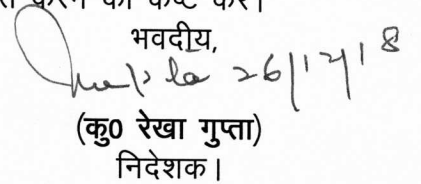 करने का कष्ट करें।
भवदीय,
26/12/18
(कु0 रेखा गुप्ता)
निदेशक।